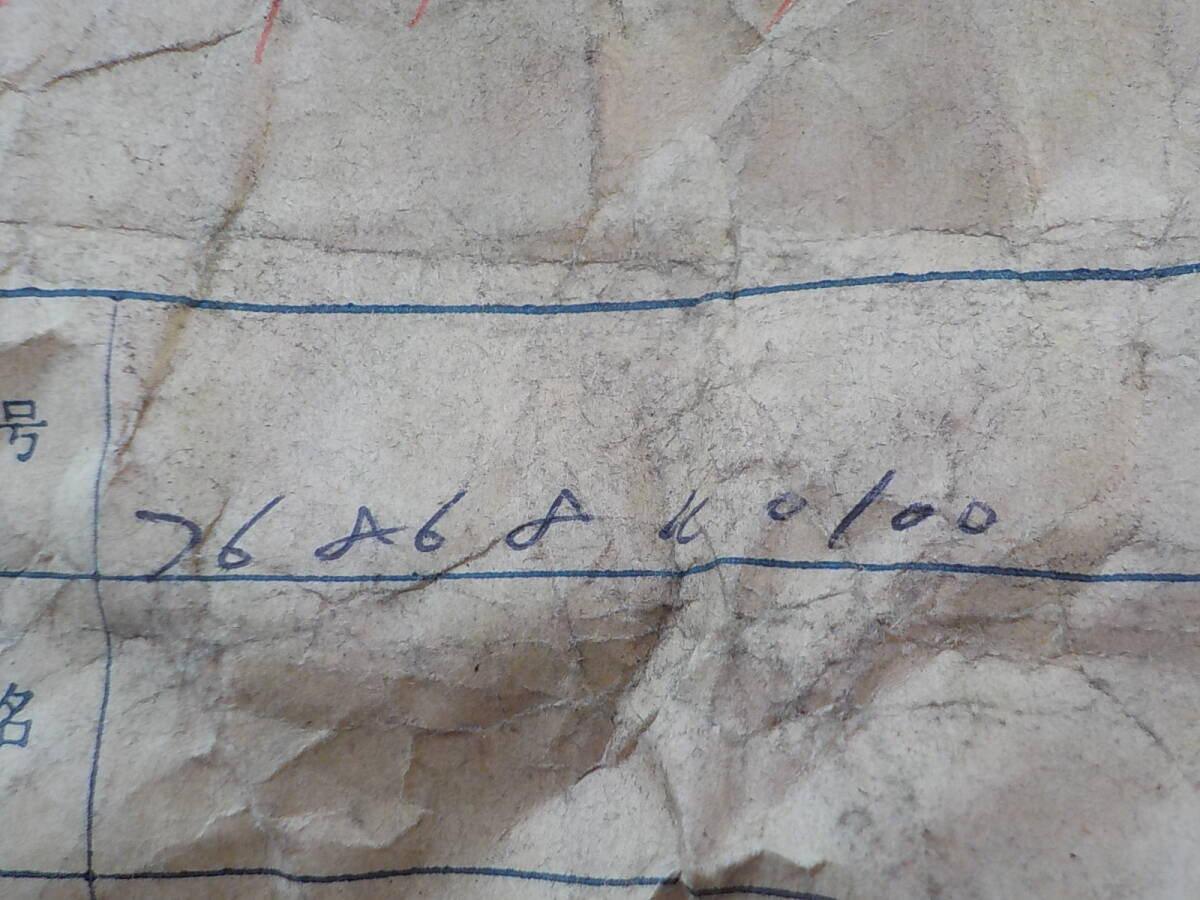 号
76 86 8 6 0100
名